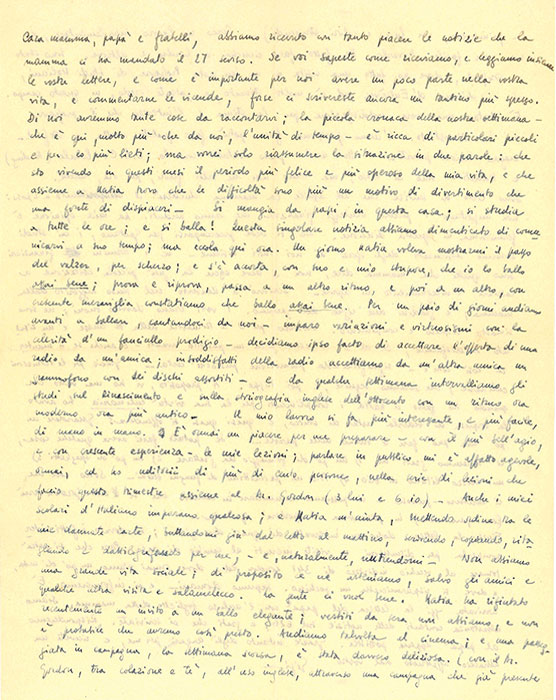 Cara mamma, papà e fratelli, abbiamo ricevuto con tanto piacere le notizie che la
mamma ci ha mandato il 27 scorso. Se voi sapeste come riceviamo, e leggiamo insieme
le vostre lettere, e come è importante per noi avere un poco parte nella vostra
vita, e commentarne le vicende, forse ci scrivereste ancora un tantino più spesso.
Di noi avremmo tante cose da raccontarvi; la piccola cronaca della nostra settimana –
che è qui, molto più che da noi, l'unità di tempo – è ricca di particolari piccoli
e per lo più lieti; ma vorrei solo riassumere la situazione in due parole: che
sto vivendo in questi mesi il periodo più felice e più operoso della mia vita, e che
assieme a Katia trovo che le difficoltà sono più un motivo di divertimento che
una fonte di dispiaceri – Si mangia da papi, in questa casa; si studia
a tutte le ore; e si balla! Questa singolare notizia abbiamo dimenticato di comu=
nicarvi a suo tempo; ma eccola qui ora. Un giorno Katia voleva mostrarmi il passo
del valzer, per scherzo; e s'è accorta, con suo e mio stupore, che io lo ballo
assai bene; prova e riprova, passa a un altro ritmo, e poi a un altro, con
crescente meraviglia constatiamo che ballo assai bene. Per un paio di giorni andiamo
avanti a ballare, cantandoci da noi – imparo variazioni e virtuosismi con la
celerità d'un fanciullo prodigio – decidiamo ipso facto di accettare l'offerta di una
radio, da un'amica; insoddisfatti della radio accettiamo da un'altra amica un
grammofono con sei dischi assortiti – e da qualche settimana intervalliamo gli
studi sul Rinascimento e sulla storiografia inglese dell'Ottocento con un ritmo ora
moderno ora più antico – Il mio lavoro si fa più interessante, e più facile,
di mano in mano. È ormai un piacere per me preparare – con il più bell'agio,
e con crescente esperienza – le mie lezioni; parlare in pubblico mi è affatto agevole,
ormai, ed ho uditorii di più di cento persone, nella serie di lezioni che
faccio questo trimestre assieme al Mr. Gordon (3 lui e 6 io) – Anche i miei
scolari d'Italiano imparano qualcosa; e Katia m'aiuta, mettendo ordine tra le
mie dannate carte, buttandomi giù dal letto al mattino, scrivendo, copiando,
per me, – e, naturalmente, nutrendomi – Non abbiamo
una grande vita sociale; di proposito ce ne asteniamo, salvo gli amici e
qualche altra visita e salamelecco. La gente ci vuol bene. Katia ha rifiutato
recentemente un invito a un ballo elegante; vestiti da sera non abbiamo, e non
è probabile che avremo così presto. Andiamo talvolta al cinema; e una passeg=
giata in campagna, la settimana scorsa, è stata davvero deliziosa. (con il Mr.
Gordon, tra colazione e tè, all'uso inglese, attraverso una campagna che già presente